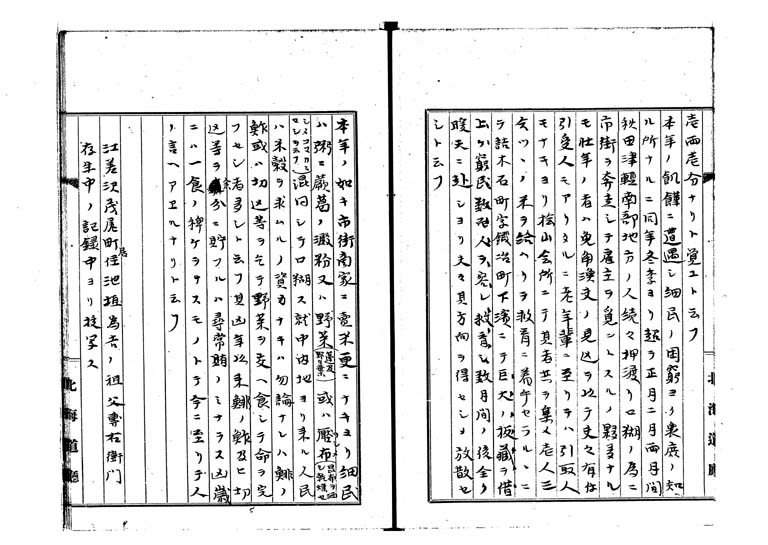 壱両壱分ナリト覚エトモ云フ
本年ノ飢饉ニ遭遇シ細民ノ困窮ヨリ衷底ノ知
ル所ナルニ同年冬季ヨリ超ヲ正月二月両月間
秋田津軽南部地方ノ人続々押渡リ口糊ノ為ニ
市街ヲ奔走シテ雇主ヲ覓ントスルノ夥多ナル
モ壮年ノ者ハ免角漁交ノ見込ヲ以テ丈々有付
引受人モアリタルニ老年輩ニ至リテハ引取人
モナキヨリ桧山会所ニテ其者共ヲ集メ老人三
合ツヽノ米ヲ給ハリヲ救育ニ着手セラルヽニ
ヲ詰木石町字鍛冶町下濱ニテ巨大ノ板蔵ヲ借
上ケ窮民数百人ヲ容レ救育シ数月間ノ後金ク
暖天ニ赴シヨリ夫々其方向ヲ得セシメ放散セ
シト云フ
北海道庁
本年ノ如キ市街商家ニ売米更ニナキヨリ細民
ハ粥ニ蕨葛ノ澱粉又ハ野菜 或ハ壓布
混同シテ口糊ス就中内地ヨリ来ル人民
ハ米穀ヲ求ムルノ資力ナキハ勿論ナレハ鯡ノ
鮓或ハ切込等ヲ以テ野菜ヲ交ヘ食シテ命ヲ完
フセシ者多シト云フ其凶年以来鯡ノ鮓及ヒ切
込等ヲ余分ニ貯フルハ尋常賄ノミナラス凶歳
ニハ一食ノ稗ケヲナスモノトテ今ニ至リ古人
ノ言ヘアエルナリト云フ
江差沢茂尻町住居池垣為吉ノ祖父専右衛門
存生中ノ記録中ヨリ抜写ス
北海道庁